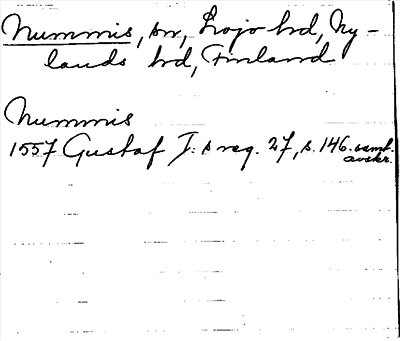 Nummis, sn, Lojo hd, Ny-
lands hd, Finland
Nummis
1557 Gustaf I: s reg. 27, s. 146. saml.
avskr.